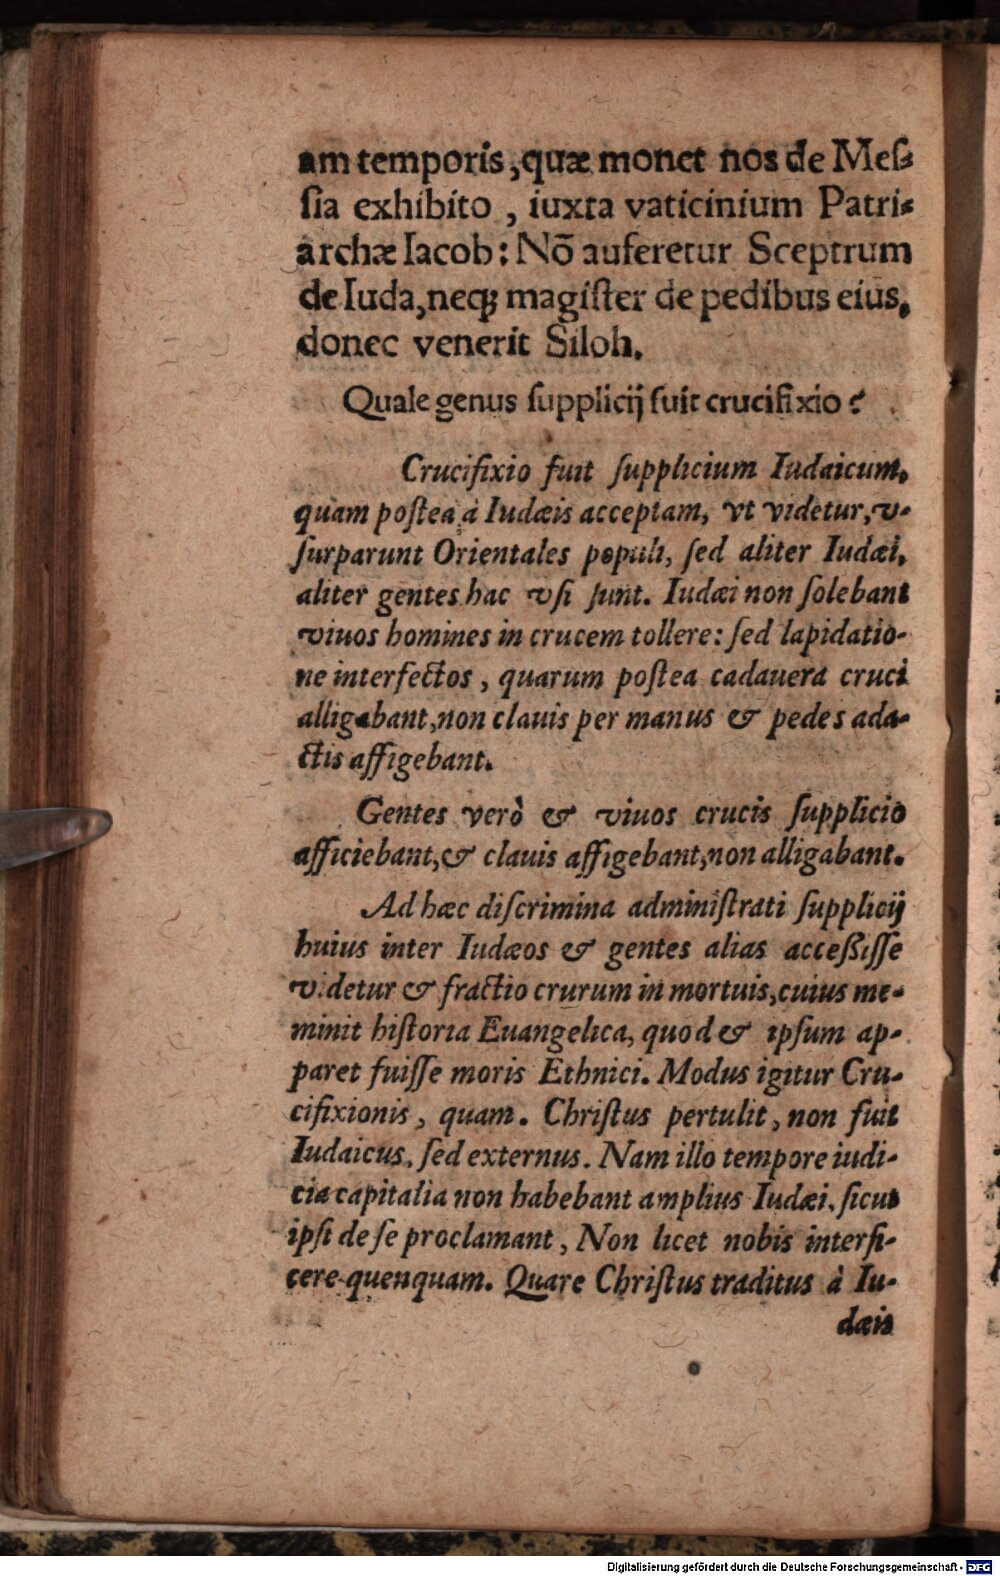 am temporis, quæ monet nos de Meſ-
ſia exhibito, iuxta vaticinium Patri-
archæ Iacob: Nõ auferetur Sceptrum
de Iuda, neqꝫ magiſter de pedibus eius,
donec venerit Siloh.
Quale genus ſupplicij fuit crucifixio?
Crucifixio fuit ſupplicium Iudaicum,
quam poſtea à Iudæis acceptam, vt videtur, v-
ſurparunt Orientales populi, ſed aliter Iudæi,
aliter gentes hac vſi ſunt. Iudæi non ſolebant
viuos homines in crucem tollere: ſed lapidatio-
ne interfectos, quarum poſtea cadauera cruci
alligabant, non clauis per manus & pedes ada-
ctis affigebant.
Gentes verò & viuos crucis ſupplicio
afficiebant, & clauis affigebant, non alligabant.
Ad hæc diſcrimina adminiſtrati ſupplicij
huius inter Iudæos & gentes alias acceßiſſe
videtur & fractio crurum in mortuis, cuius me-
minit hiſtoria Euangelica, quod & ipſum ap-
paret fuiſſe moris Ethnici. Modus igitur Cru-
cifixionis, quam. Chriſtus pertulit, non fuit
Iudaicus, ſed externus. Nam illo tempore iudi-
cia capitalia non habebant amplius Iudæi, ſicut
ipſi de ſe proclamant, Non licet nobis interfi-
cere quenquam. Quare Chriſtus traditus à Iu-
dæis
Digitalisierung gefördert durch die Deutsche Forschungsgemeinschaft - DFG